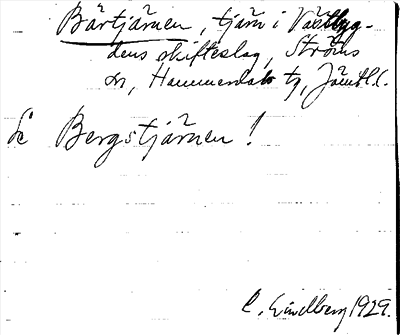 Bärtjärnen, tjärn i Västbyg-
dens skifteslag, Ströms
sn, Hammerdals tg, Jämtl. l.
Se Bergstjärnen!
C. Lindberg 1929.